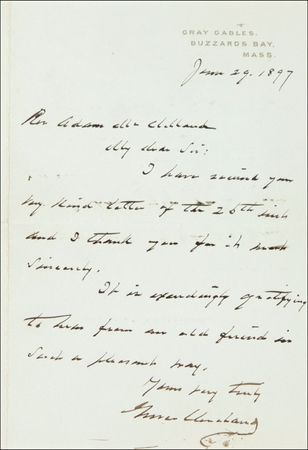 GRAY GABLES.
BUZZARDS BAY,
MASS.
June 29, 1897
Rev Adam McClelland
My dear Sir:
I have received your
very kind letter of the 26th inst
and I thank you for it most
sincerely.
It is exceedingly gratifying
to hear from an old friend in
such a pleasant way.
Yours very truly
Grover Cleveland